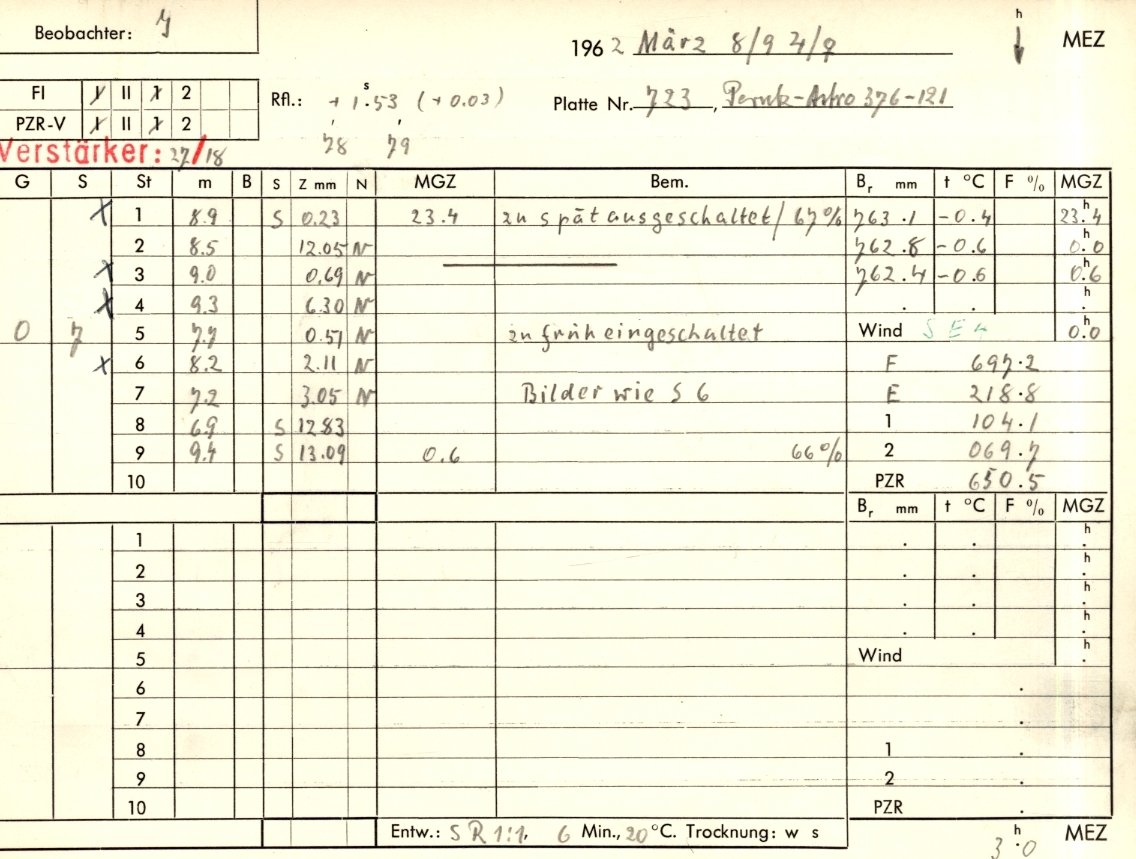 Beobachter: y
1962 März 8/9 4/♀
h MEZ
FI I II 1 2
PZR-V I II 1 2
Rfl.: + 1.ˢ53 (+0.03)
78 79
Platte Nr. 723, Perutz-Astro 376-121
Verstärker: 27/18
G S St m B S Z mm N MGZ Bem. Bᵣ mm t °C F % MGZ
X 1 8.9 S 0.23 23.4 zu spät ausgeschaltet / 67% 763.1 -0.4 23.ʰ4
2 8.5 12.05 N 762.8 -0.6 0.ʰ0
X 3 9.0 0.69 N 762.4 -0.6 0.ʰ6
X 4 9.3 6.30 N . . .ʰ
0 7 5 7.7 0.51 N zu früh eingeschaltet Wind S E 4 0.ʰ0
X 6 8.2 2.11 N F 697.2
7 7.2 3.05 N Bilder wie S 6 E 218.8
8 6.9 S 12.83 1 104.1
9 9.4 S 13.09 0.6 66% 2 069.7
10 PZR 650.5
Bᵣ mm t °C F % MGZ
1 . . .ʰ
2 . . .ʰ
3 . . .ʰ
4 . . .ʰ
5 Wind .ʰ
6 .
7 .
8 1 .
9 2 .
10 PZR .
Entw.: S R 1:1, 6 Min., 20 °C. Trocknung: w s
3.ʰ0 MEZ